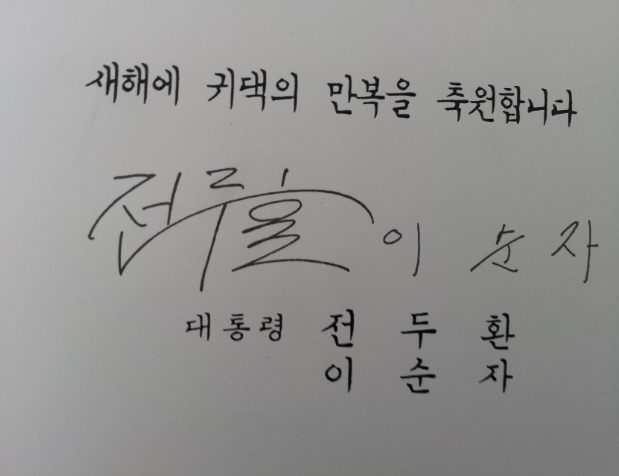 새해에 귀댁의 만복을 축원합니다
전두환 이 순 자
대통령 전 두 환
이 순 자